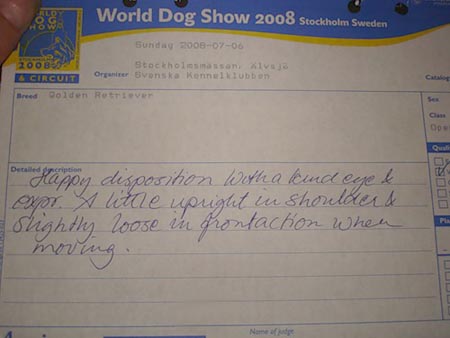 WORLD
DOG
SHOW
STOCKHOLM
2008
& CIRCUIT
World Dog Show 2008 Stockholm Sweden
Sunday 2008-07-06
Stockholmsmässan, Älvsjö
Organizer Svenska Kennelklubben
Catalog
Breed Golden Retriever
Sex
Class
Ope
Quali
Detailed description
Happy disposition with a kind eye &
expr. A little upright in shoulder &
slightly loose in frontaction when
moving.
Pla
Name of judge